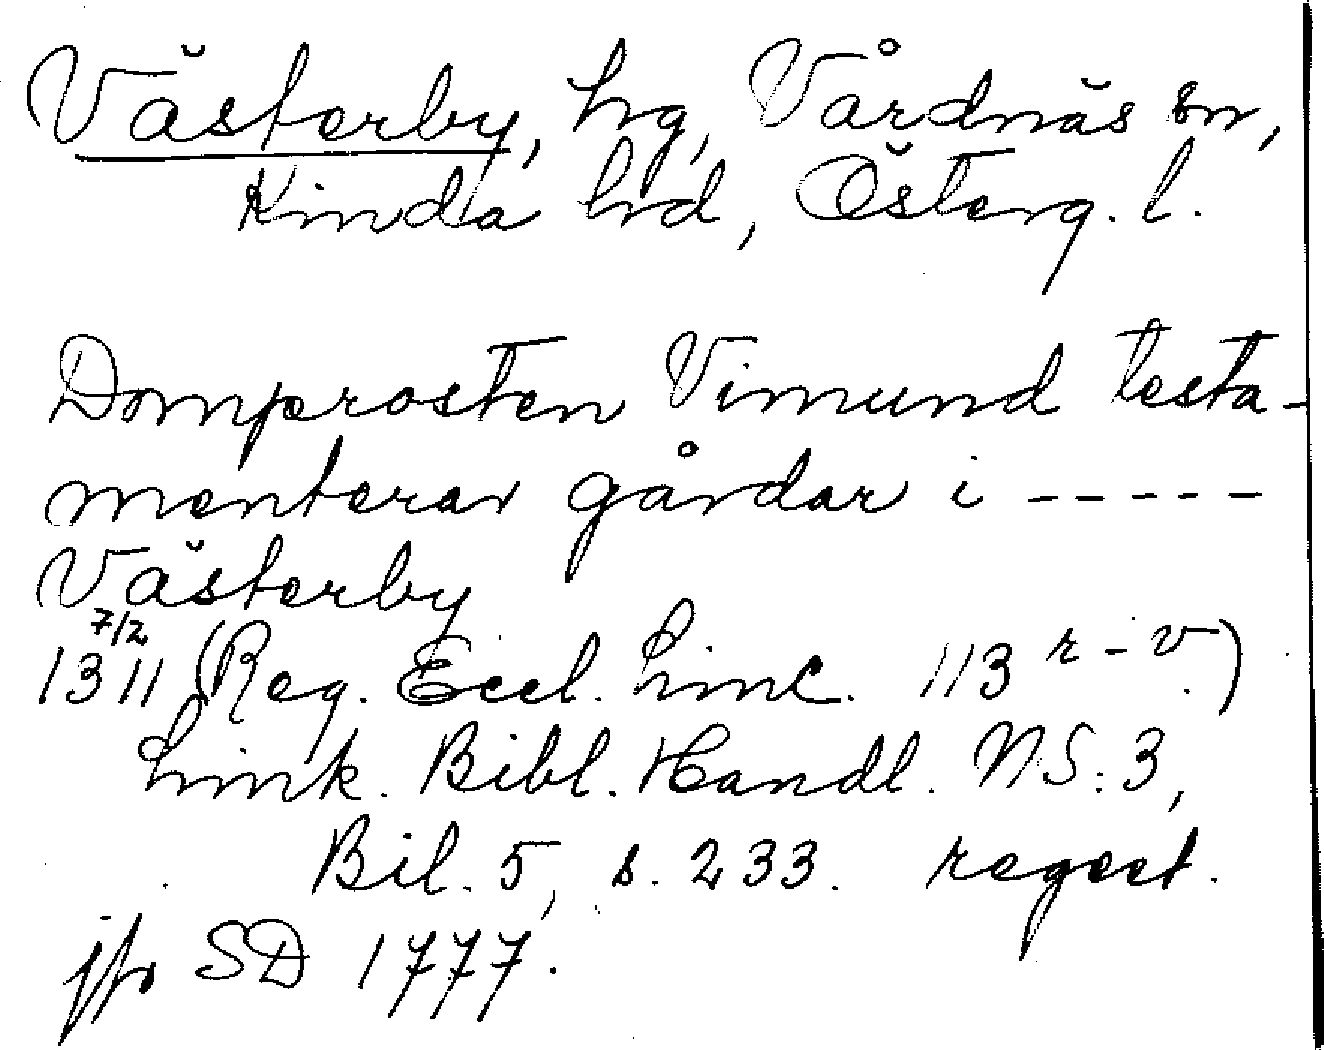 Västerby, hg, Vårdnäs sn,
Kinda hd, Österg. l.
Domprosten Vimund testa-
menterar gårdar i -----
Västerby
7/2
1311 (Reg. Eccl. Linc. 113 r-v.)
Link. Bibl. Handl. NS: 3,
Bil. 5, s. 233. regest.
jfr SD 1777.